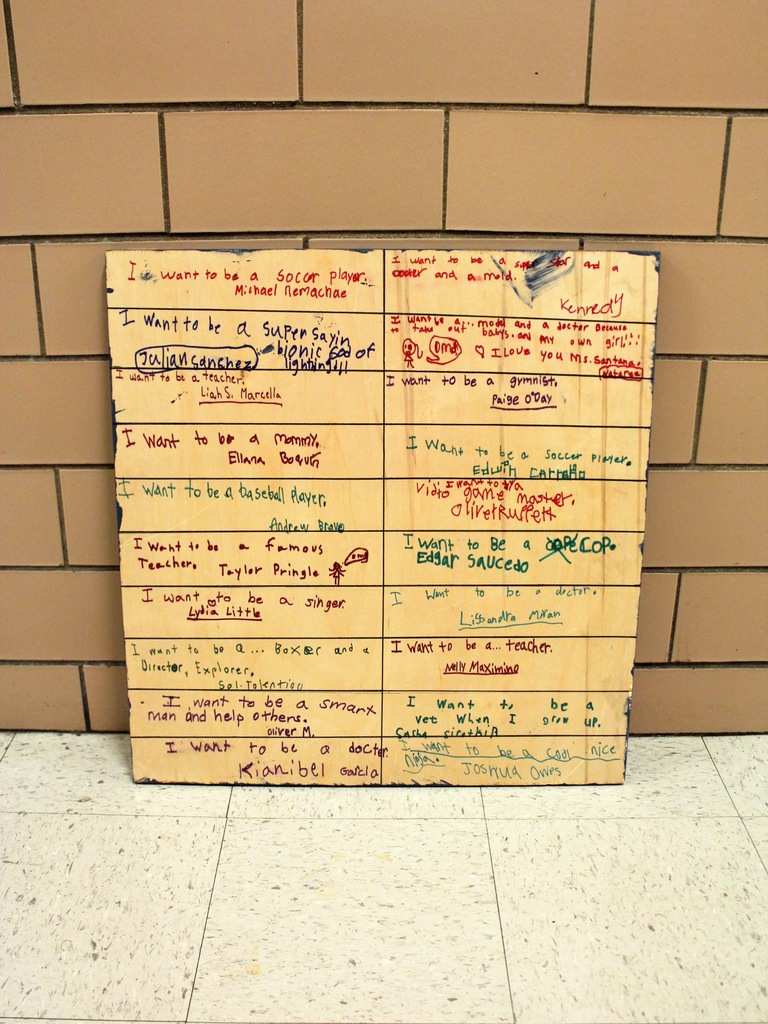 I want to be a soccer player.
Michael Nemachae
I want to be a super star and a
docter and a mold.
Kennedy
I want to be a super sayin
bionic God of
lightning!!!
Julian Sanchez
I want be a... model and a doctor Because
to take out babys. and my own girl!!!
omg I Love you Ms. Santana.
Natanae
I want to be a teacher.
Liah S. Marcella
I want to be a gymnist.
Paige O'Day
I want to be a mommy.
Eliana
I want to be a soccer player.
Edwin Carreño
I want to be a baseball player.
Andrew Bravo
I want to be a
video game master.
Oliver Ruffett
I want to be a famous
Teacher. Taylor Pringle omg
I want to Be a COP.
Edgar Saucedo
I want to be a singer.
Lydia Little
I want to be a doctor.
Lissandra
I want to be a... Boxer and a
Director, Explorer.
Sol. Tolentino
I want to be a... teacher.
Nelly Maximino
I want to be a smarx
man and help others.
Oliver M.
I want to be a
vet when I grow up.
Sasha
I want to be a docter.
Kianibel Garcia
I want to be a cool nice
Ninja. Joshua Owes